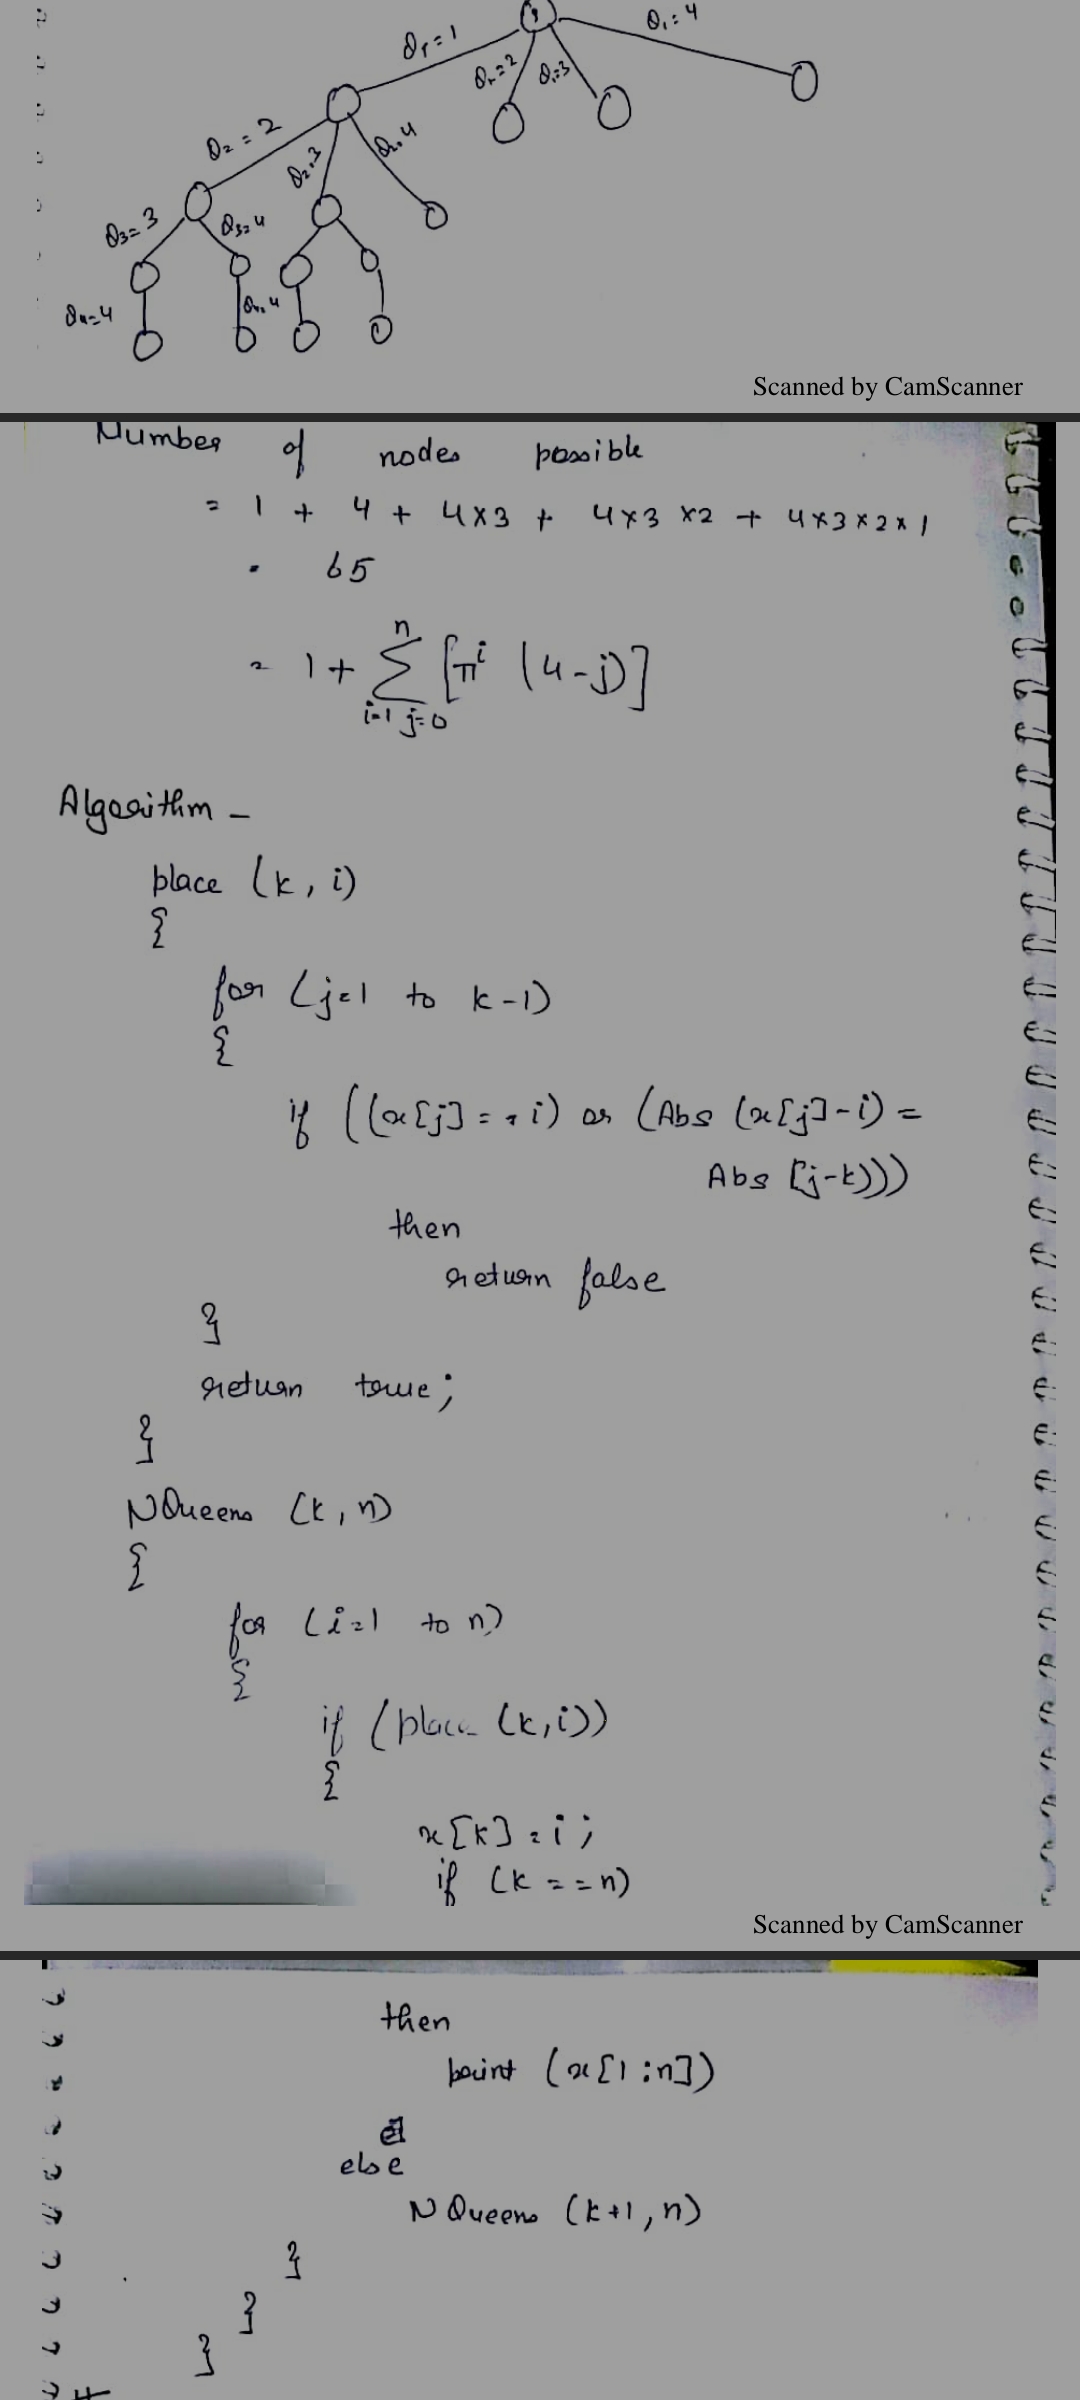 1
Q1=1
Q1=2
Q1=3
Q1=4
Q2=2
Q2=3
Q2=4
Q3=3
Q3=4
Q4=4
Q4=4
Scanned by CamScanner
Number of nodes possible
= 1 + 4 + 4×3 + 4×3×2 + 4×3×2×1
= 65
= 1 + n Σ i=1 [ π i j=0 (4-j)]
Algorithm -
place (k, i)
{
for (j=1 to k-1)
{
if ((x[j] == i) or (Abs (x[j]-i) =
Abs [j-k)))
then
return false
}
return true;
}
NQueens (k, n)
{
for (i=1 to n)
{
if (place (k,i))
{
x[k] = i;
if (k == n)
Scanned by CamScanner
then
print (x[1:n])
else
NQueens (k+1, n)
}
}
}